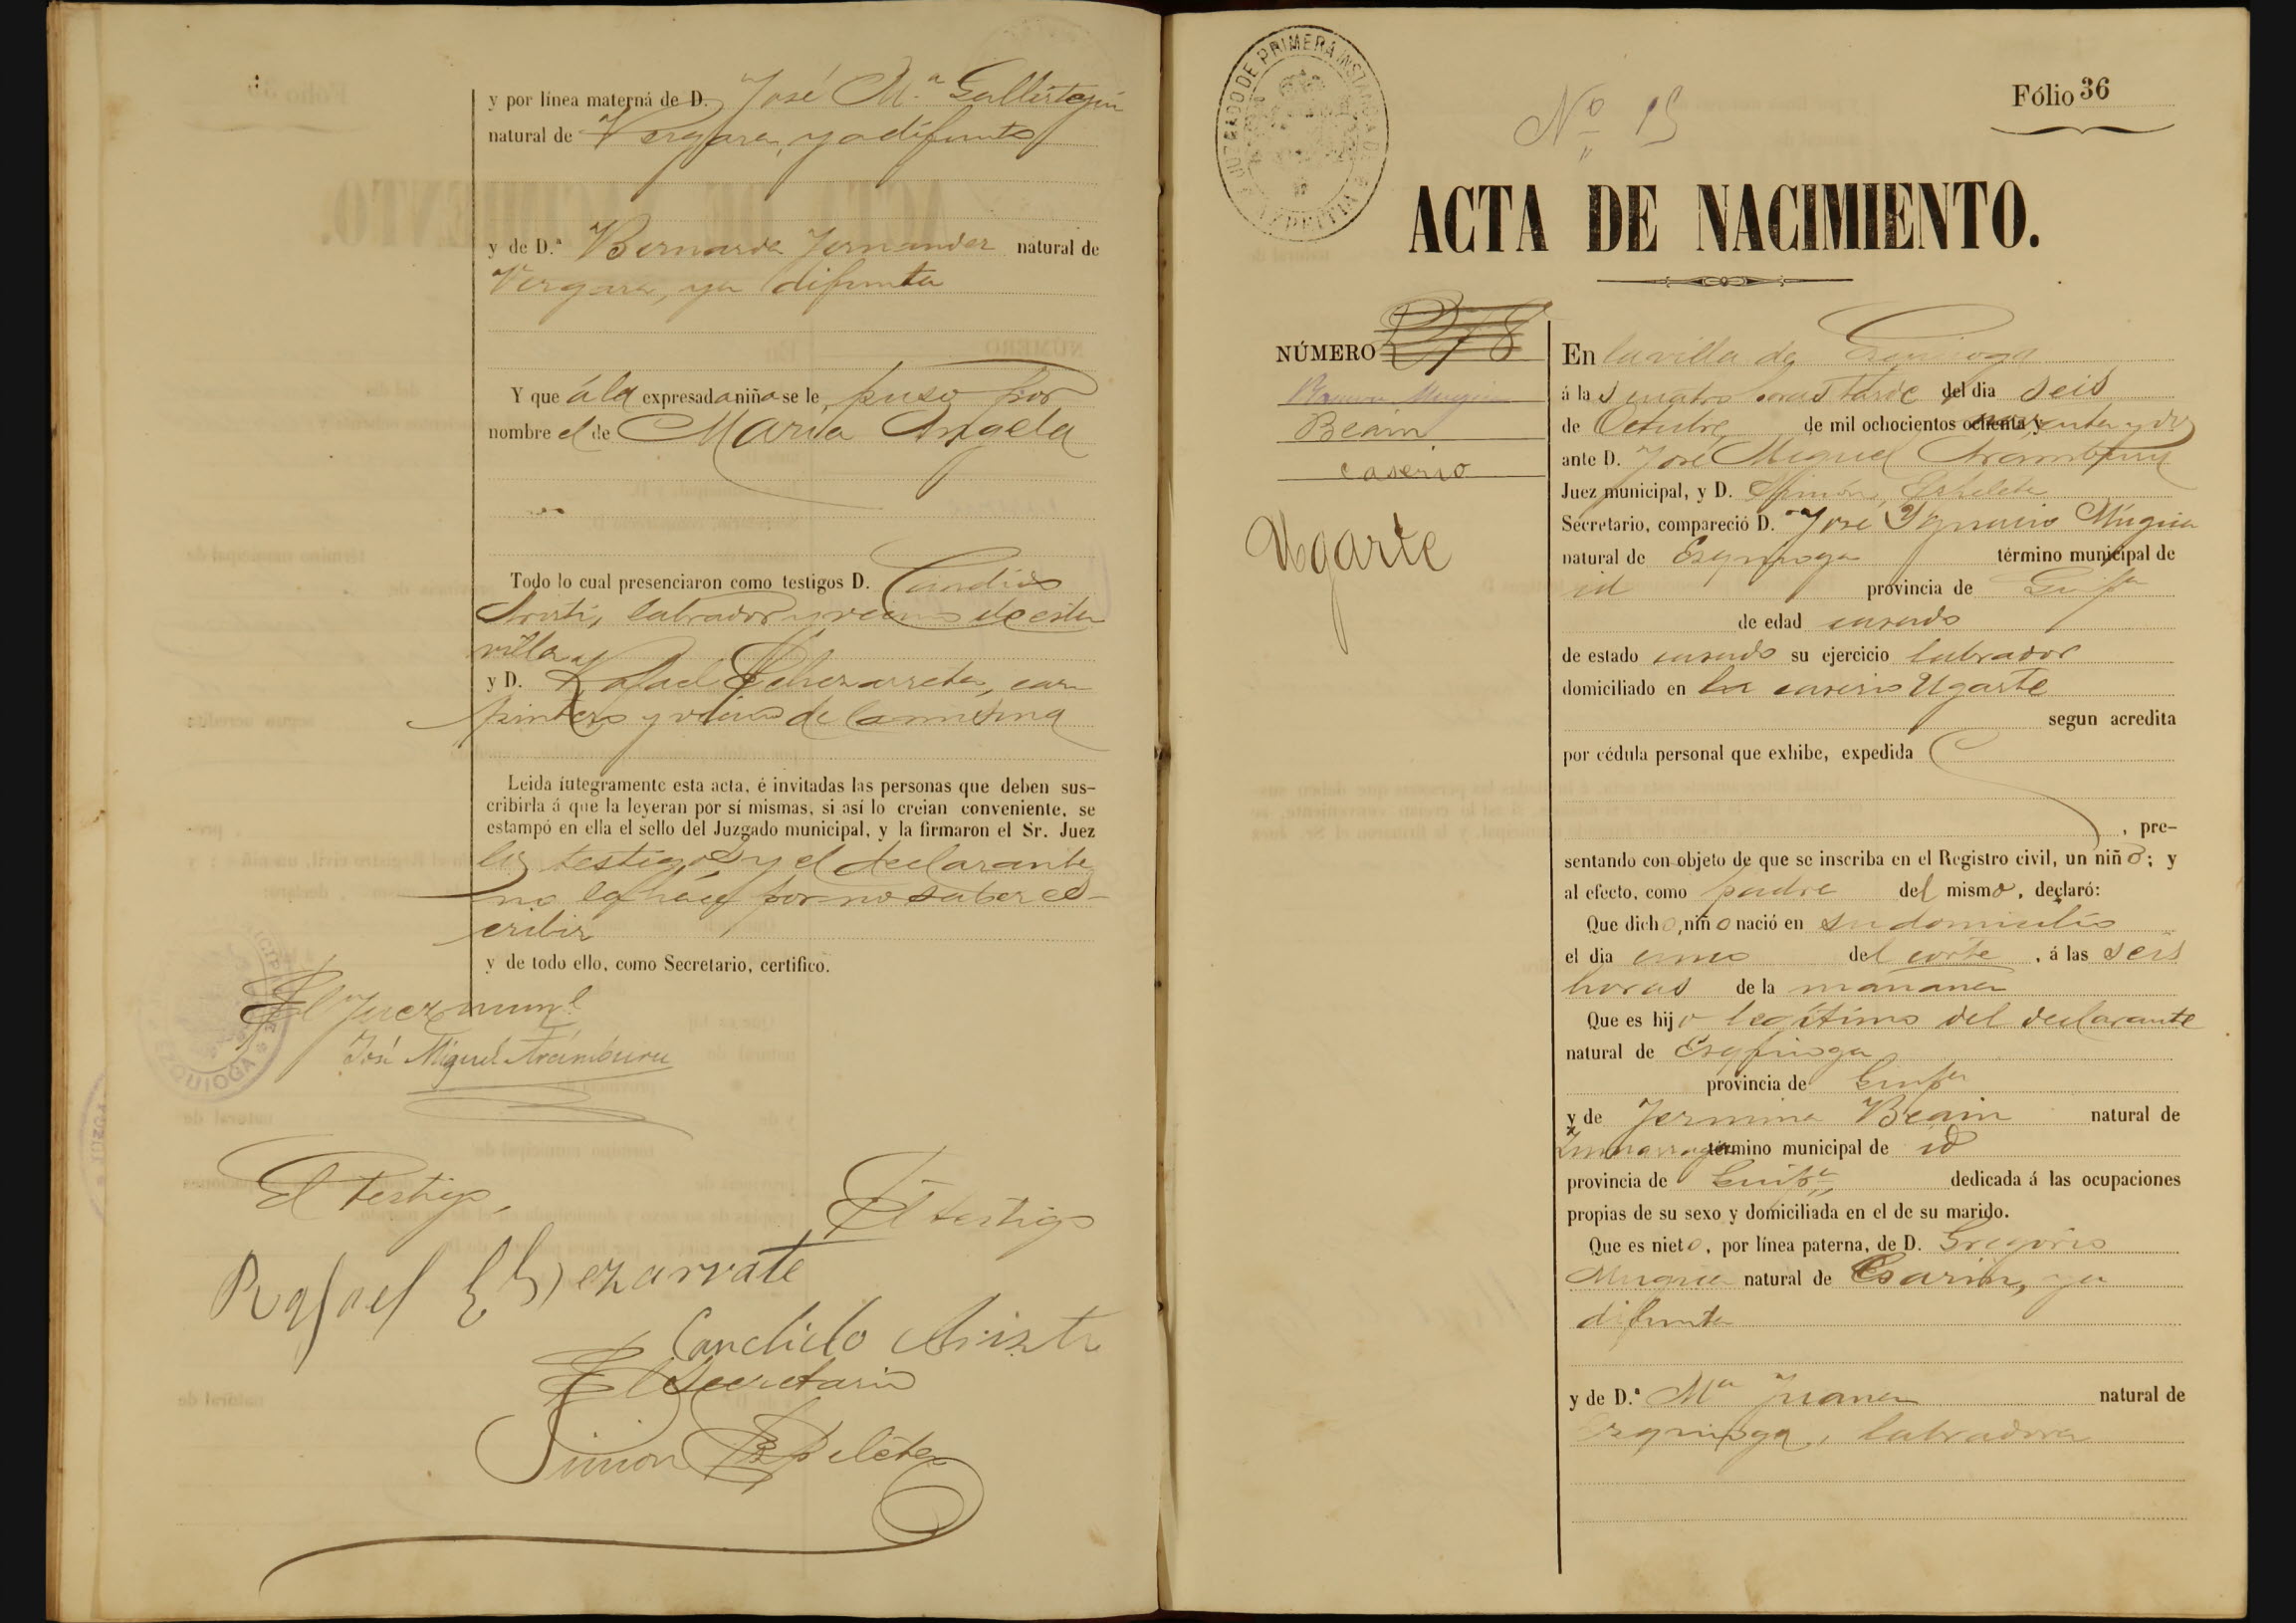 y por línea materna de D. José M.ª Gallastegui
natural de Vergara, ya difunto
y de D.ª Bernarda Fernandez natural de
Vergara, ya difunta
Y que á la expresada niña se le puso por
nombre el de Maria Angela
Todo lo cual presenciaron como testigos D. Candido
labrador y vecino de esta
villa y
y D. Rafael Echezarreta, car
pintero y vecino de la misma
Leida íntegramente esta acta, é invitadas las personas que deben sus-
cribirla á que la leyeran por sí mismas, si así lo creian conveniente, se
estampó en ella el sello del Juzgado municipal, y la firmaron el Sr. Juez
los testigos y el declarante
no lo hace por no saber es-
cribir
y de todo ello, como Secretario, certifico.
El Juez mun.l
José Miguel Aramburu
EZQUIOGA
El testigo,
El testigo
Rafael Echezarreta
Candido
El Secretario
Simon
JUZGADO DE PRIMERA INSTANCIA DE AZPEITIA
Nº 15
Fólio 36
ACTA DE NACIMIENTO.
NÚMERO
Mugica
Beain
caserio
Ugarte
En la villa de Ezquioga
á las cuatro horas tarde del dia seis
de Octubre de mil ochocientos ochenta y noventa y dos
ante D. José Miguel Aramburu
Juez municipal, y D. Simón
Secretario, compareció D. José Ygnacio Múgica
natural de Ezquioga término municipal de
id provincia de Guip.a
de edad casado
de estado casado su ejercicio labrador
domiciliado en la caserio Ugarte
segun acredita
por cédula personal que exhibe, expedida
, pre-
sentando con objeto de que se inscriba en el Registro civil, un niño; y
al efecto, como padre del mismo, declaró:
Que dicho niño nació en su domicilio
el dia cinco del corte, á las seis
horas de la mañana
Que es hijo legítimo del declarante
natural de Ezquioga
provincia de Guip.a
y de Fermina Beain natural de
Zumarraga término municipal de id
provincia de Guip.a dedicada á las ocupaciones
propias de su sexo y domiciliada en el de su marido.
Que es nieto, por línea paterna, de D. Gregorio
Mugica natural de ya
difunto
y de D.ª M.a Juana natural de
Ezquioga, labradora